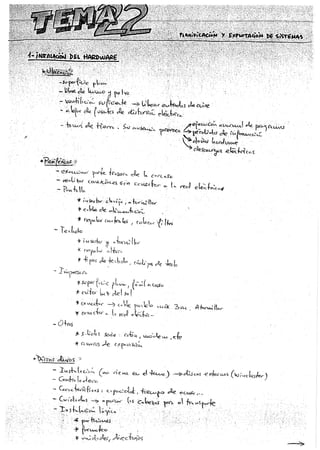 TEMA 2
PLANIFICACIÓN Y EXPLOTACIÓN DE SISTEMAS
1- INSTALACIÓN DEL HARDWARE
• Ubicación:
- superficie plana
- libre de humo y polvo
- ventilación suficiente → liberar entradas de aire
- alejar de fuentes de distorsión eléctrica
- toma de tierra. Su ausencia provoca
ejecución anormal de programas
pérdidas de información
daños hardware
descargas eléctricas
• Periféricos:
- examinar parte trasera de la carcasa
- realizar conexiones sin conectar a la red eléctrica
- Pantalla
* insertar clavija, atornillar
* cable de alimentación
* regular contraste, colocar filtro
- Teclado
* insertar y atornillar
* regular altura
* tipos de teclado, código de teclado
- Impresora
* superficie plana, fácil acceso
* evitar luz del sol
* conectar → cable paralelo máx 3m. Atornillar
* conectar a la red eléctrica
- Otros
* salidas serie: ratón, modem, etc
* ranuras de expansión
• Discos duros:
- Instalación (no viene en el tema) → discos externos (winchester)
- Controladora
- Características: capacidad, tiempo de acceso...
- Cuidados → aparcar las cabezas para el transporte
- Instalación lógica
* particiones
* formateo
* unidades, directorios